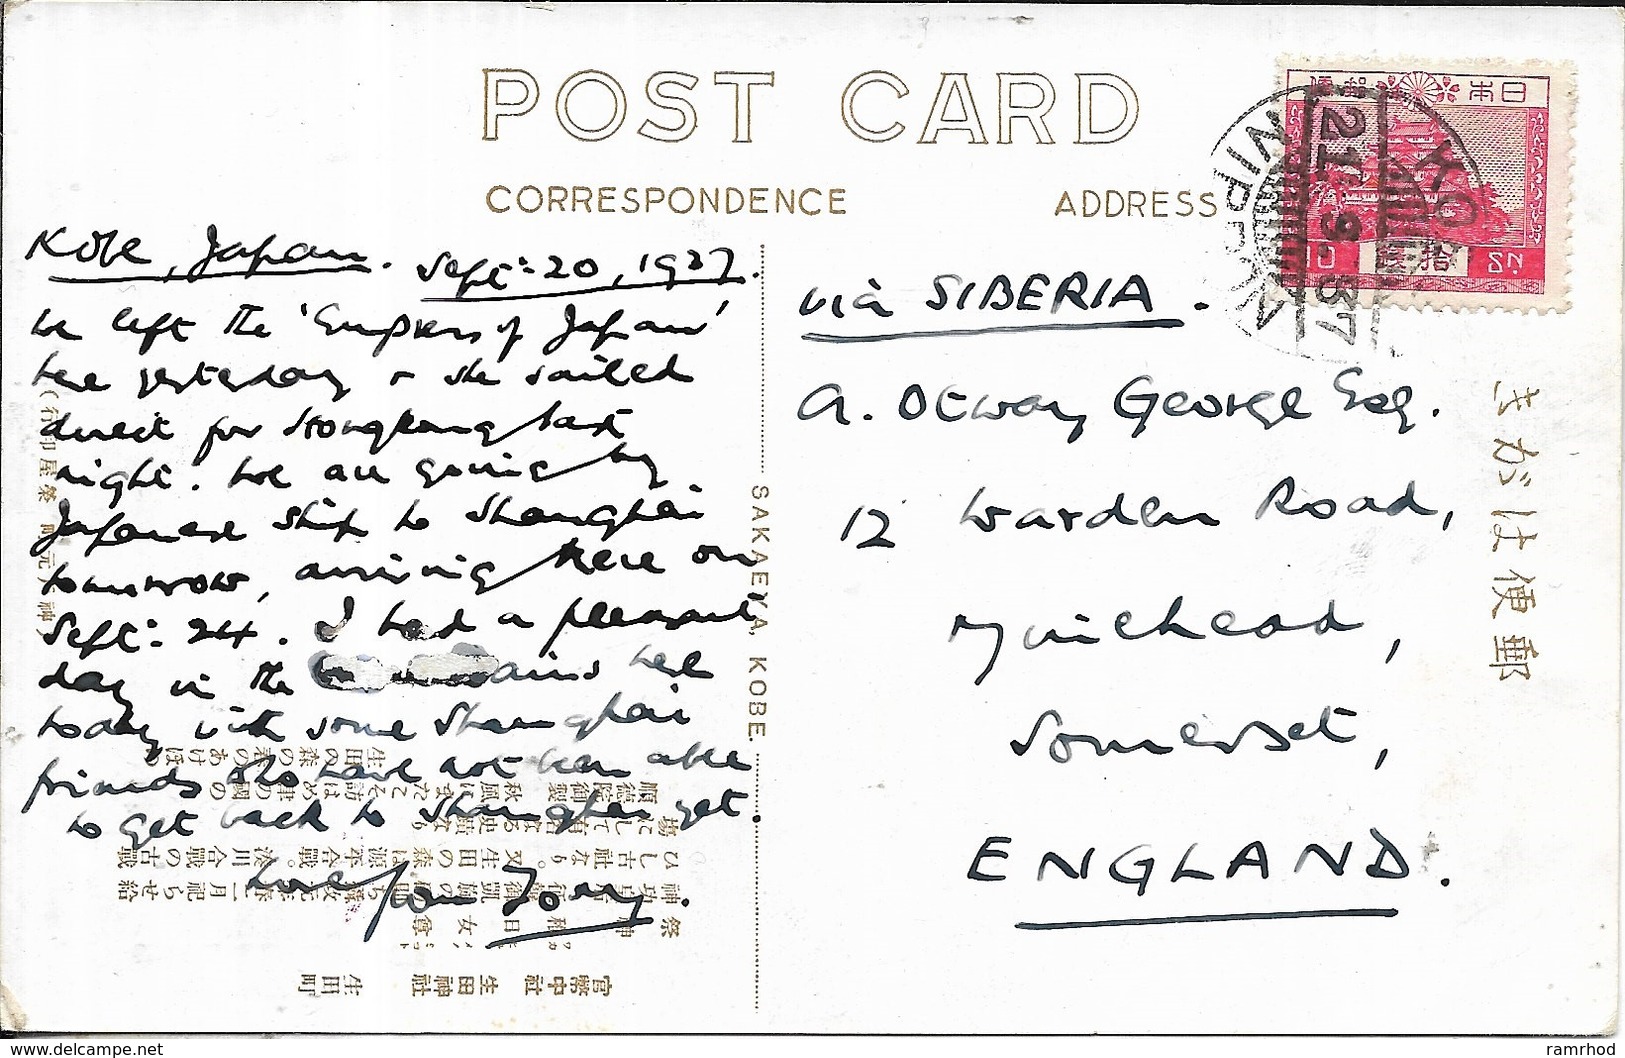 POST CARD
CORRESPONDENCE ADDRESS
Kobe, Japan. Sept: 20, 1937.
We left the 'Empress of Japan'
here yesterday & she sailed
direct for Hongkong last
night. We are going by
Japanese ship to Shanghai
tomorrow, arriving there on
Sept: 24. I had a pleasant
day in the ains here
today with some Shanghai
friends who have not been able
to get back to Shanghai yet.
Love from Tony.
via SIBERIA.
A. Otway George Esq.
12 Warden Road,
Minehead,
Somerset,
ENGLAND.
日本
拾
10 SN
KOBE
21. 9. 37
NIPPON
きがは便郵
SAKAEYA, KOBE.
(神戸元町 榮屋印行)
官幣中社 生田神社 生田町
delcampe.net
ramrhod